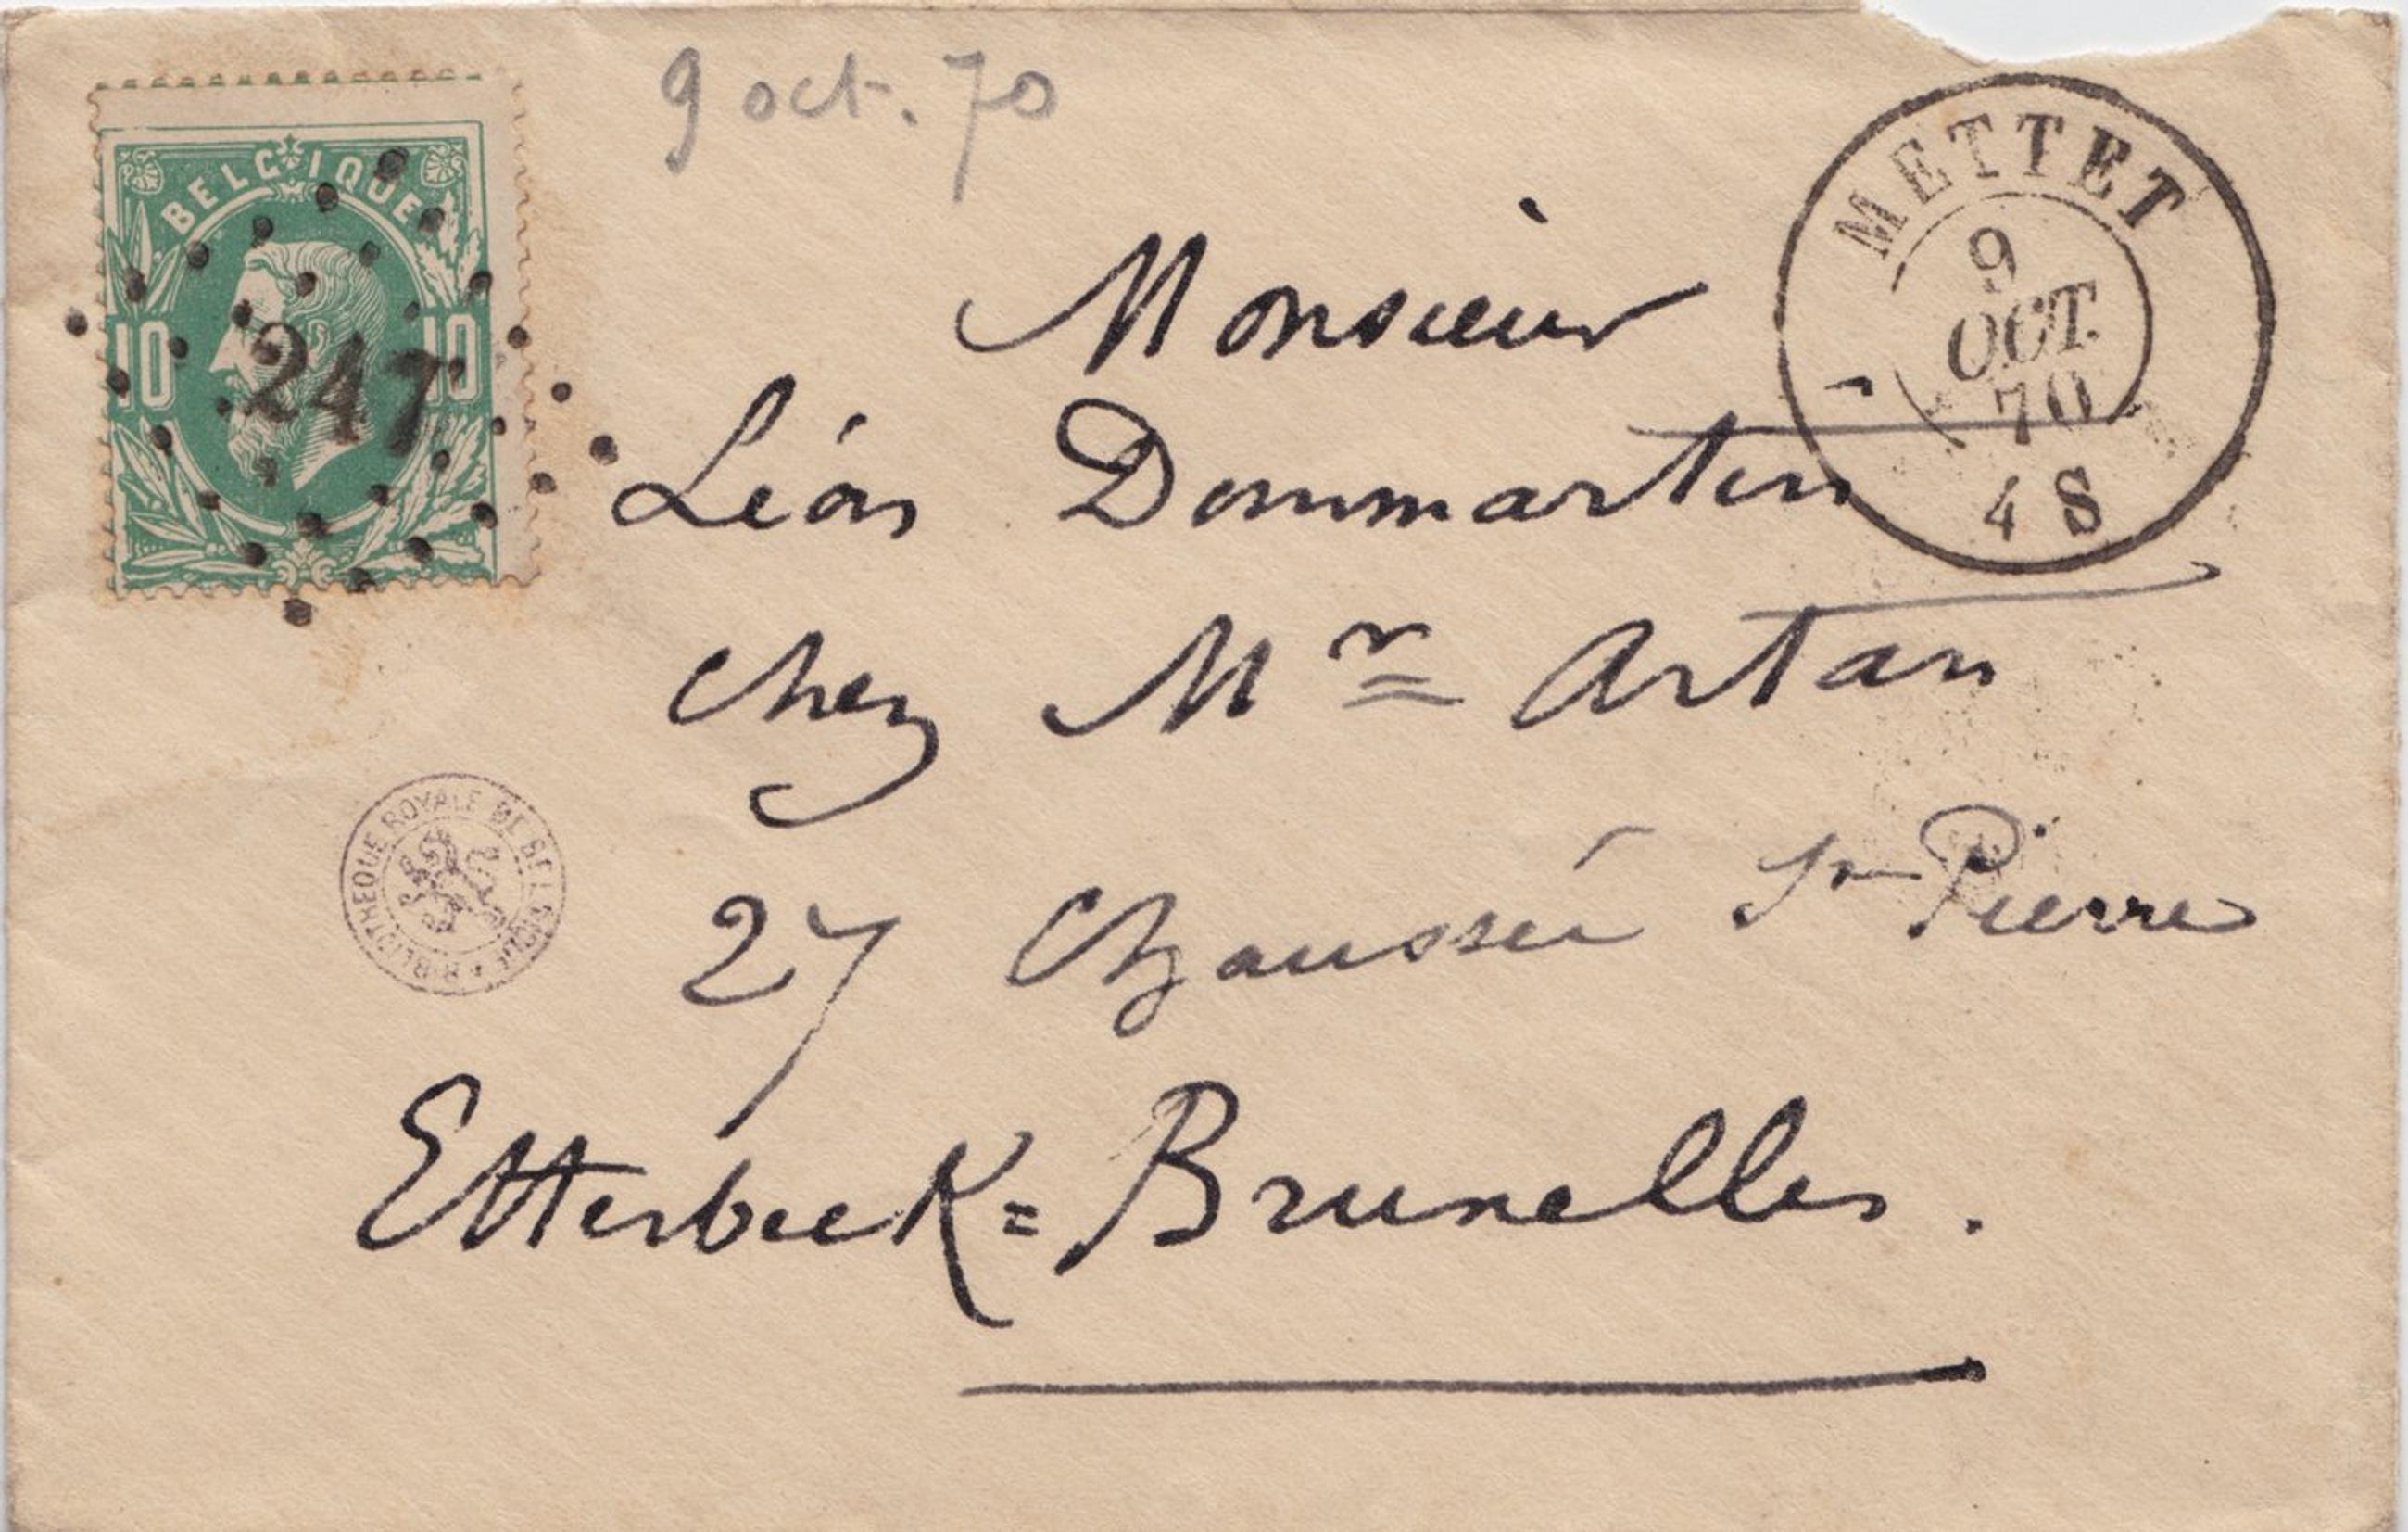 9 oct. 70
BELGIQUE
10 10
247
METTET
9
OCT.
70
4 S
Monsieur
Léon Dommartin
chez Mr Artan
27 Chaussée St Pierre
Etterbeek = Bruxelles.
BIBLIOTHEQUE ROYALE DE BELGIQUE